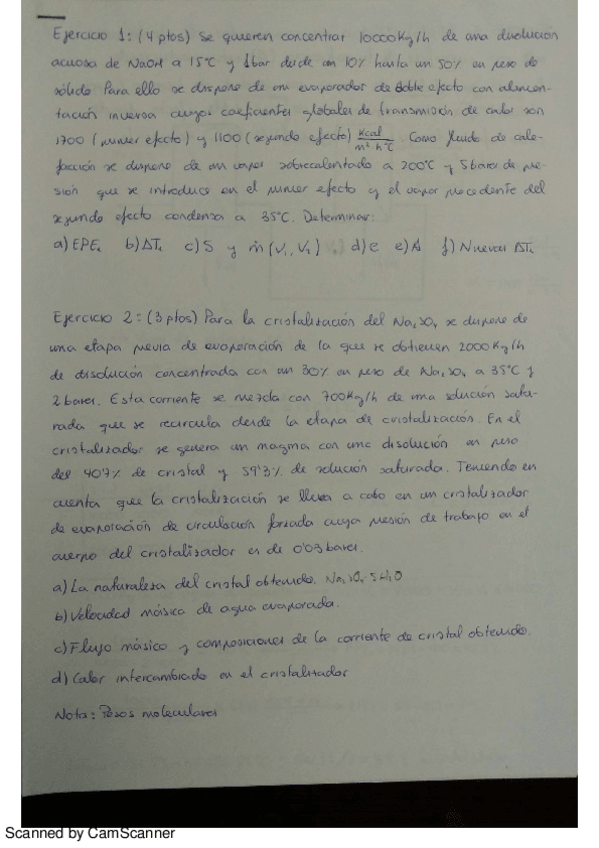 Ejercicio 1: (4 ptos) Se quieren concentrar 10000 Kg/h de una disolución
acuosa de NaOH a 15°C y 1 bar desde un 10% hasta un 50% en peso de
sólido. Para ello se dispone de un evaporador de doble efecto con alimen-
tación inversa cuyos coeficientes globales de transmisión de calor son
1700 (primer efecto) y 1100 (segundo efecto) Kcal/m² h °C. Como fluido de cale-
facción se dispone de un vapor sobrecalentado a 200°C y 5 bares de pre-
sión que se introduce en el primer efecto y el vapor procedente del
segundo efecto condensa a 35°C. Determinar:
a) EPE b) ΔT c) S y ṁ (V₁, V₂) d) e e) A f) Nuevas ΔT
Ejercicio 2: (3 ptos) Para la cristalización del Na₂SO₄ se dispone de
una etapa previa de evaporación de la que se obtienen 2000 Kg/h
de disolución concentrada con un 30% en peso de Na₂SO₄ a 35°C y
2 bares. Esta corriente se mezcla con 700 Kg/h de una solución satu-
rada que se recircula desde la etapa de cristalización. En el
cristalizador se genera un magma con una disolución en peso
del 40'7% de cristal y 59'3% de solución saturada. Teniendo en
cuenta que la cristalización se lleva a cabo en un cristalizador
de evaporación de circulación forzada cuya presión de trabajo en el
cuerpo del cristalizador es de 0'03 bares.
a) La naturaleza del cristal obtenido. Na₂SO₄
b) Velocidad másica de agua evaporada.
c) Flujo másico y composiciones de la corriente de cristal obtenido.
d) Calor intercambiado en el cristalizador
Nota: Pesos moleculares
Scanned by CamScanner